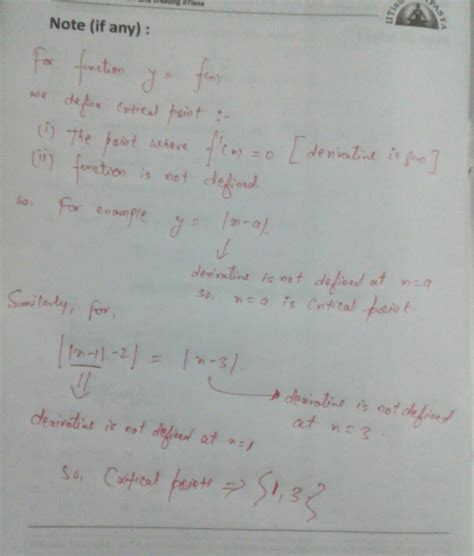 Note (if any) :
For function y = f(x)
we define critical point :-
(i) The point where f'(x) = 0 [derivative is zero]
(ii) function is not defined.
so, For example y = |x-a|.
↓
derivative is not defined at x=a
so, x=a is critical point.
Similarly, for,
||x-1|-2| = |x-3|.
derivative is not defined
at x=3.
derivative is not defined at x=1
So, Critical points ⇒ {1,3}